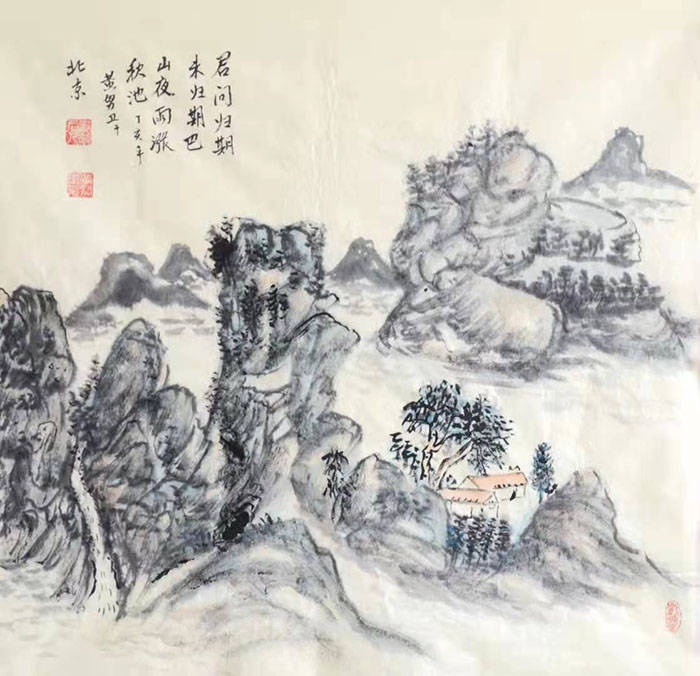 君问归期
未归期巴
山夜雨涨
秋池 丁亥年
黄
北京